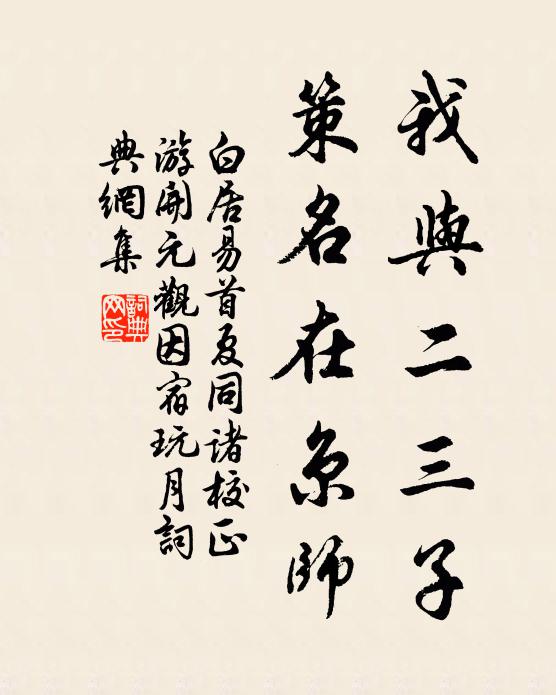 我與二三子
策名在京師
白居易首夏同諸校正
游開元觀因宿玩月詞
典網集
詞典網印